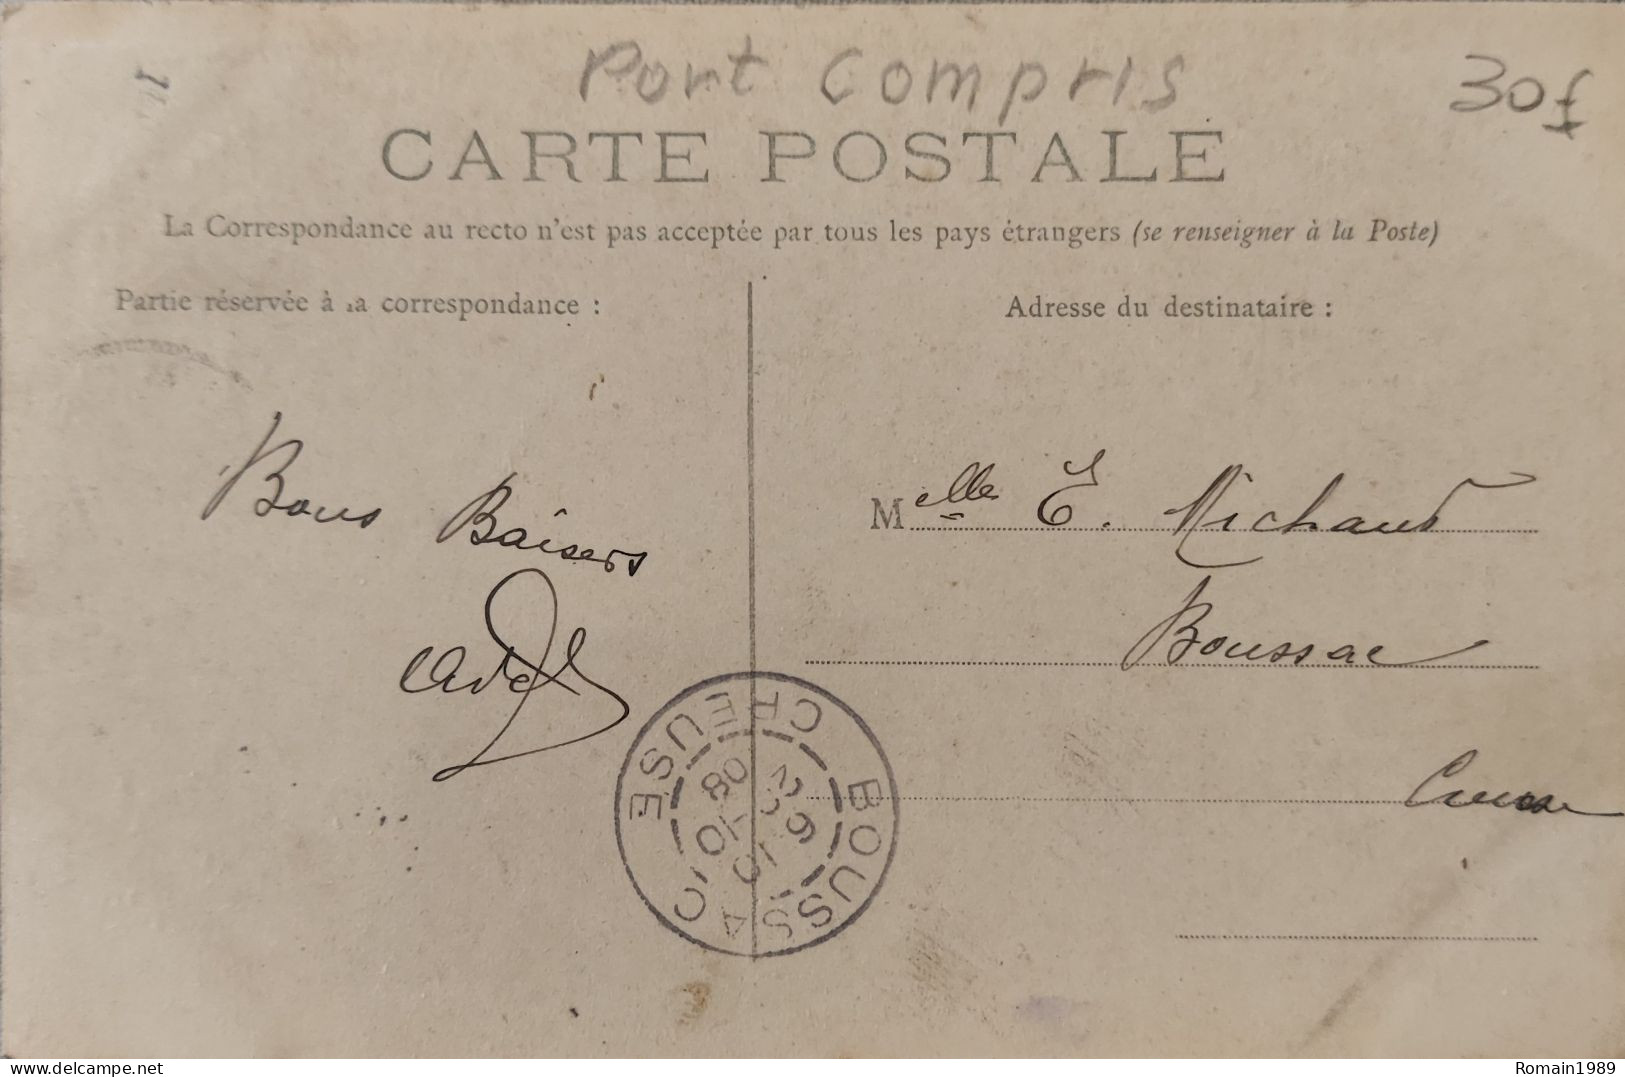 Port Compris
30f
CARTE POSTALE
La Correspondance au recto n'est pas acceptée par tous les pays étrangers (se renseigner à la Poste)
Partie réservée à la correspondance :
Adresse du destinataire :
Bons Baisers
Melle E. Michaud
Boussac
Creuse
BOUSSAC
CREUSE
delcampe.net
Romain1989